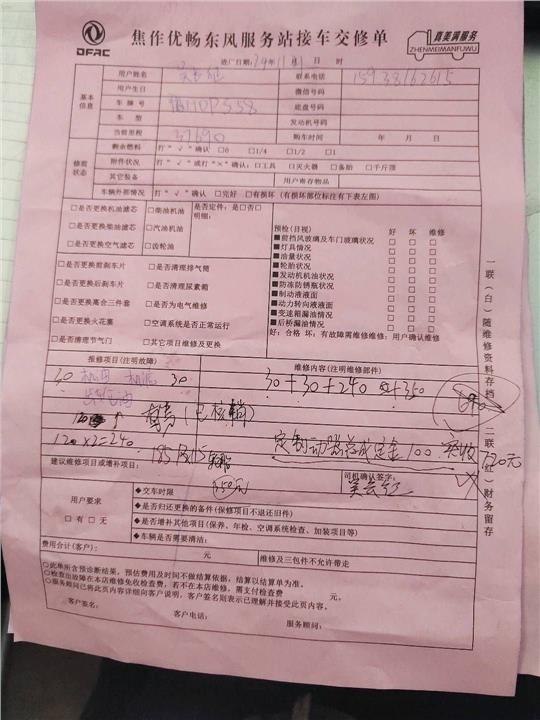 DFAC
焦作优畅东风服务站接车交修单
真美满服务
ZHENMEIMANFUWU
进厂日期: 24年11月1日 时
基本信息
用户姓名 联系电话 15938162615
用户生日 微信号码
车牌号 底盘号码
车型 发动机号码
当前里程 37690 购车时间 年 月 日
修前状态
剩余燃料 打“√”确认 □0 □1/4 □1/2 □1
附件状况 打“√”或打“×”确认:□工具 □灭火器 □备胎 □千斤顶
其它装备 用户寄存物品
车辆外部情况 打“√”确认 □完好 □有损坏 (有损坏部位标注有下表左图)
□是否更换机油滤芯 □柴油机油 是否定件:是□否□
□是否更换柴油滤芯 □汽油机油 明细:
□是否更换空气滤芯 □齿轮油
□是否更换前刹车片 □是否清理排气筒
□是否更换后刹车片 □是否清理尿素箱
□是否更换离合三件套 □是否为电气维修
□是否更换火花塞 □空调系统是否正常运行
□是否清理节气门 □其它项目维修及更换
预检(目视) 好 坏 维修
■前挡风玻璃及车门玻璃状况 □ □ □
■灯具情况 □ □ □
■油量状况 □ □ □
■轮胎状况 □ □ □
■发动机机油状况 □ □ □
■防冻防锈瓶状况 □ □ □
■制动液液面 □ □ □
■动力转向液液面 □ □ □
■变速箱漏油情况 □ □ □
■后桥漏油情况 □ □ □
好:合格 坏:有故障需维修维修:用户确认维修
报修项目(注明故障) 维修内容(注明维修部件)
30 30 30+30+240+350
690
(已核销)
120×2=240
定制动器总成定金100 720元
350元
建议维修项目或增补项目: 司机确认签字:
用户要求
□有 □无
◆交车时限
◆是否归还更换的备件(保修项目不退还旧件)
◆是否增补其他项目(保养、年检、空调系统检查、加装项目等)
◆车辆是否需要清洁:
费用合计(客户): 元 维修及三包件不允许带走
○此单所含预诊断结果,预估费用及时间不做结算依据,结算以结算单为准。
○检查出故障在本店维修免收检查费,若不在本店维修,需支付检查费 元。
○服务顾问已将此页内容详细向客户说明,客户签名则表示已理解并接受此页内容。
客户签名: 客户电话: 服务顾问:
一联(白)随维修资料存档 二联(红)财务留存